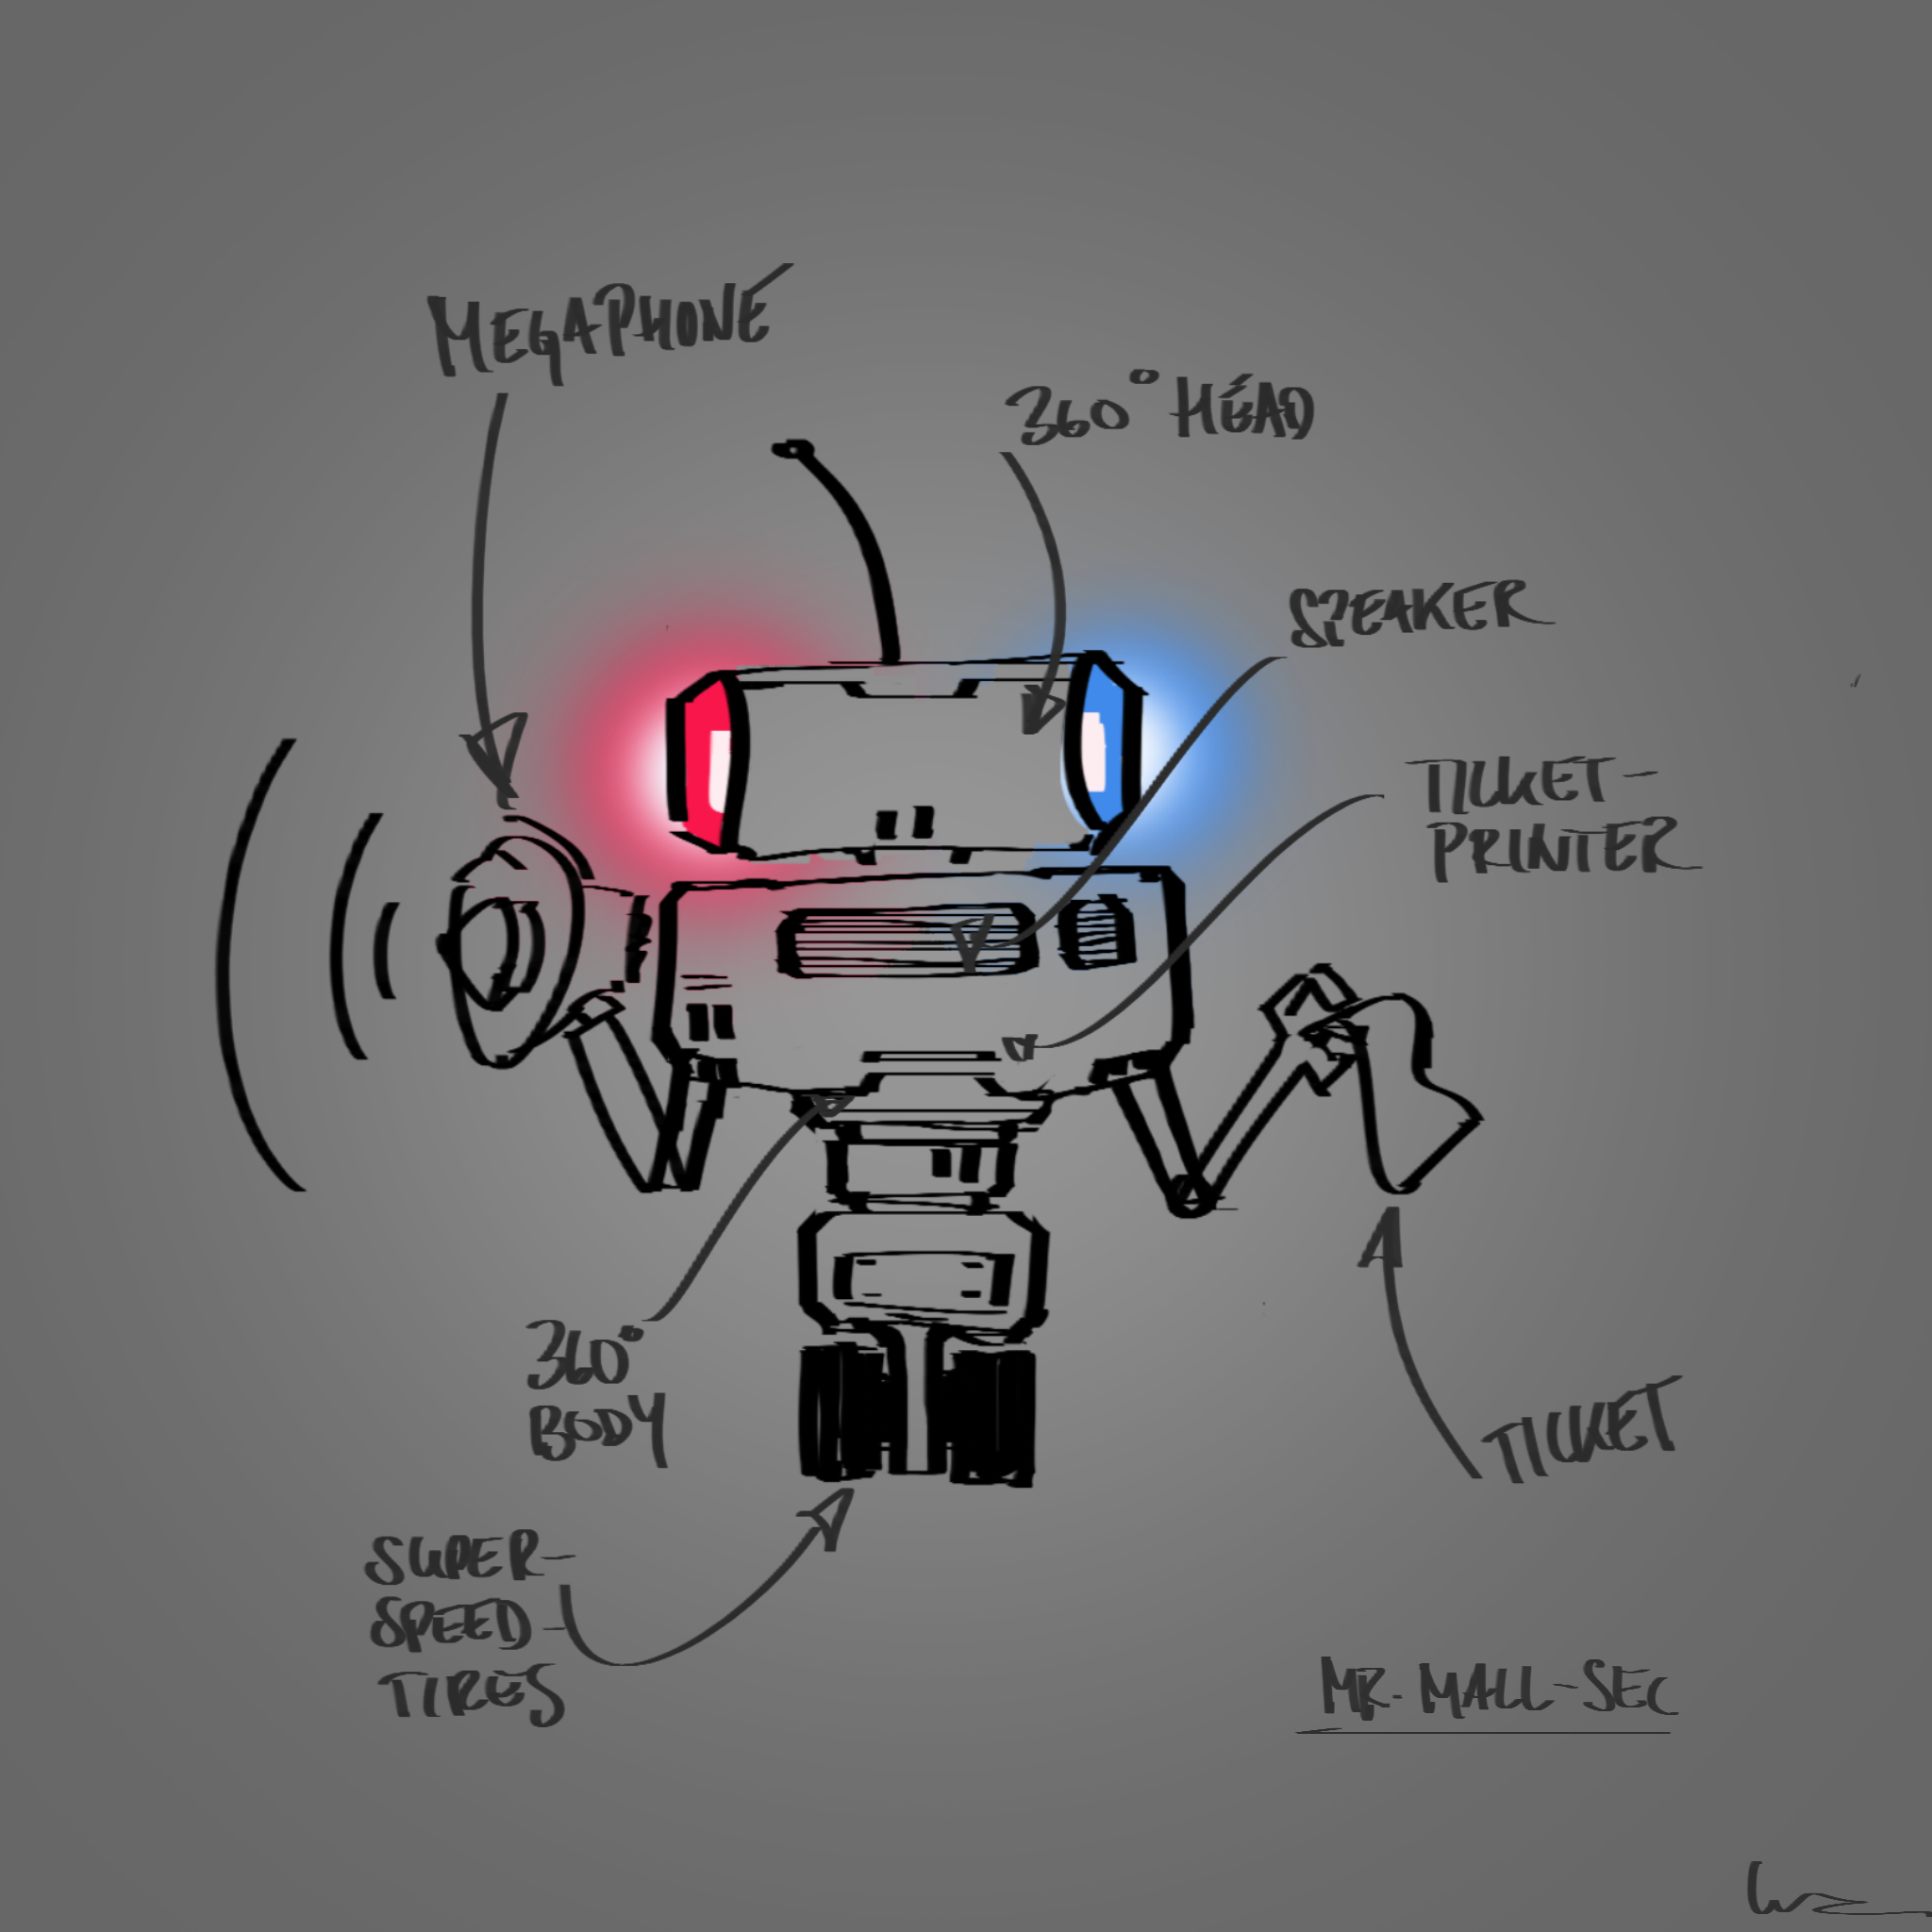 MEGAPHONE
360° HEAD
SPEAKER
TICKET-
PRINTER
360°
BODY
TICKET
SUPER-
SPEED-
TIRES
MR. MALL-SEC